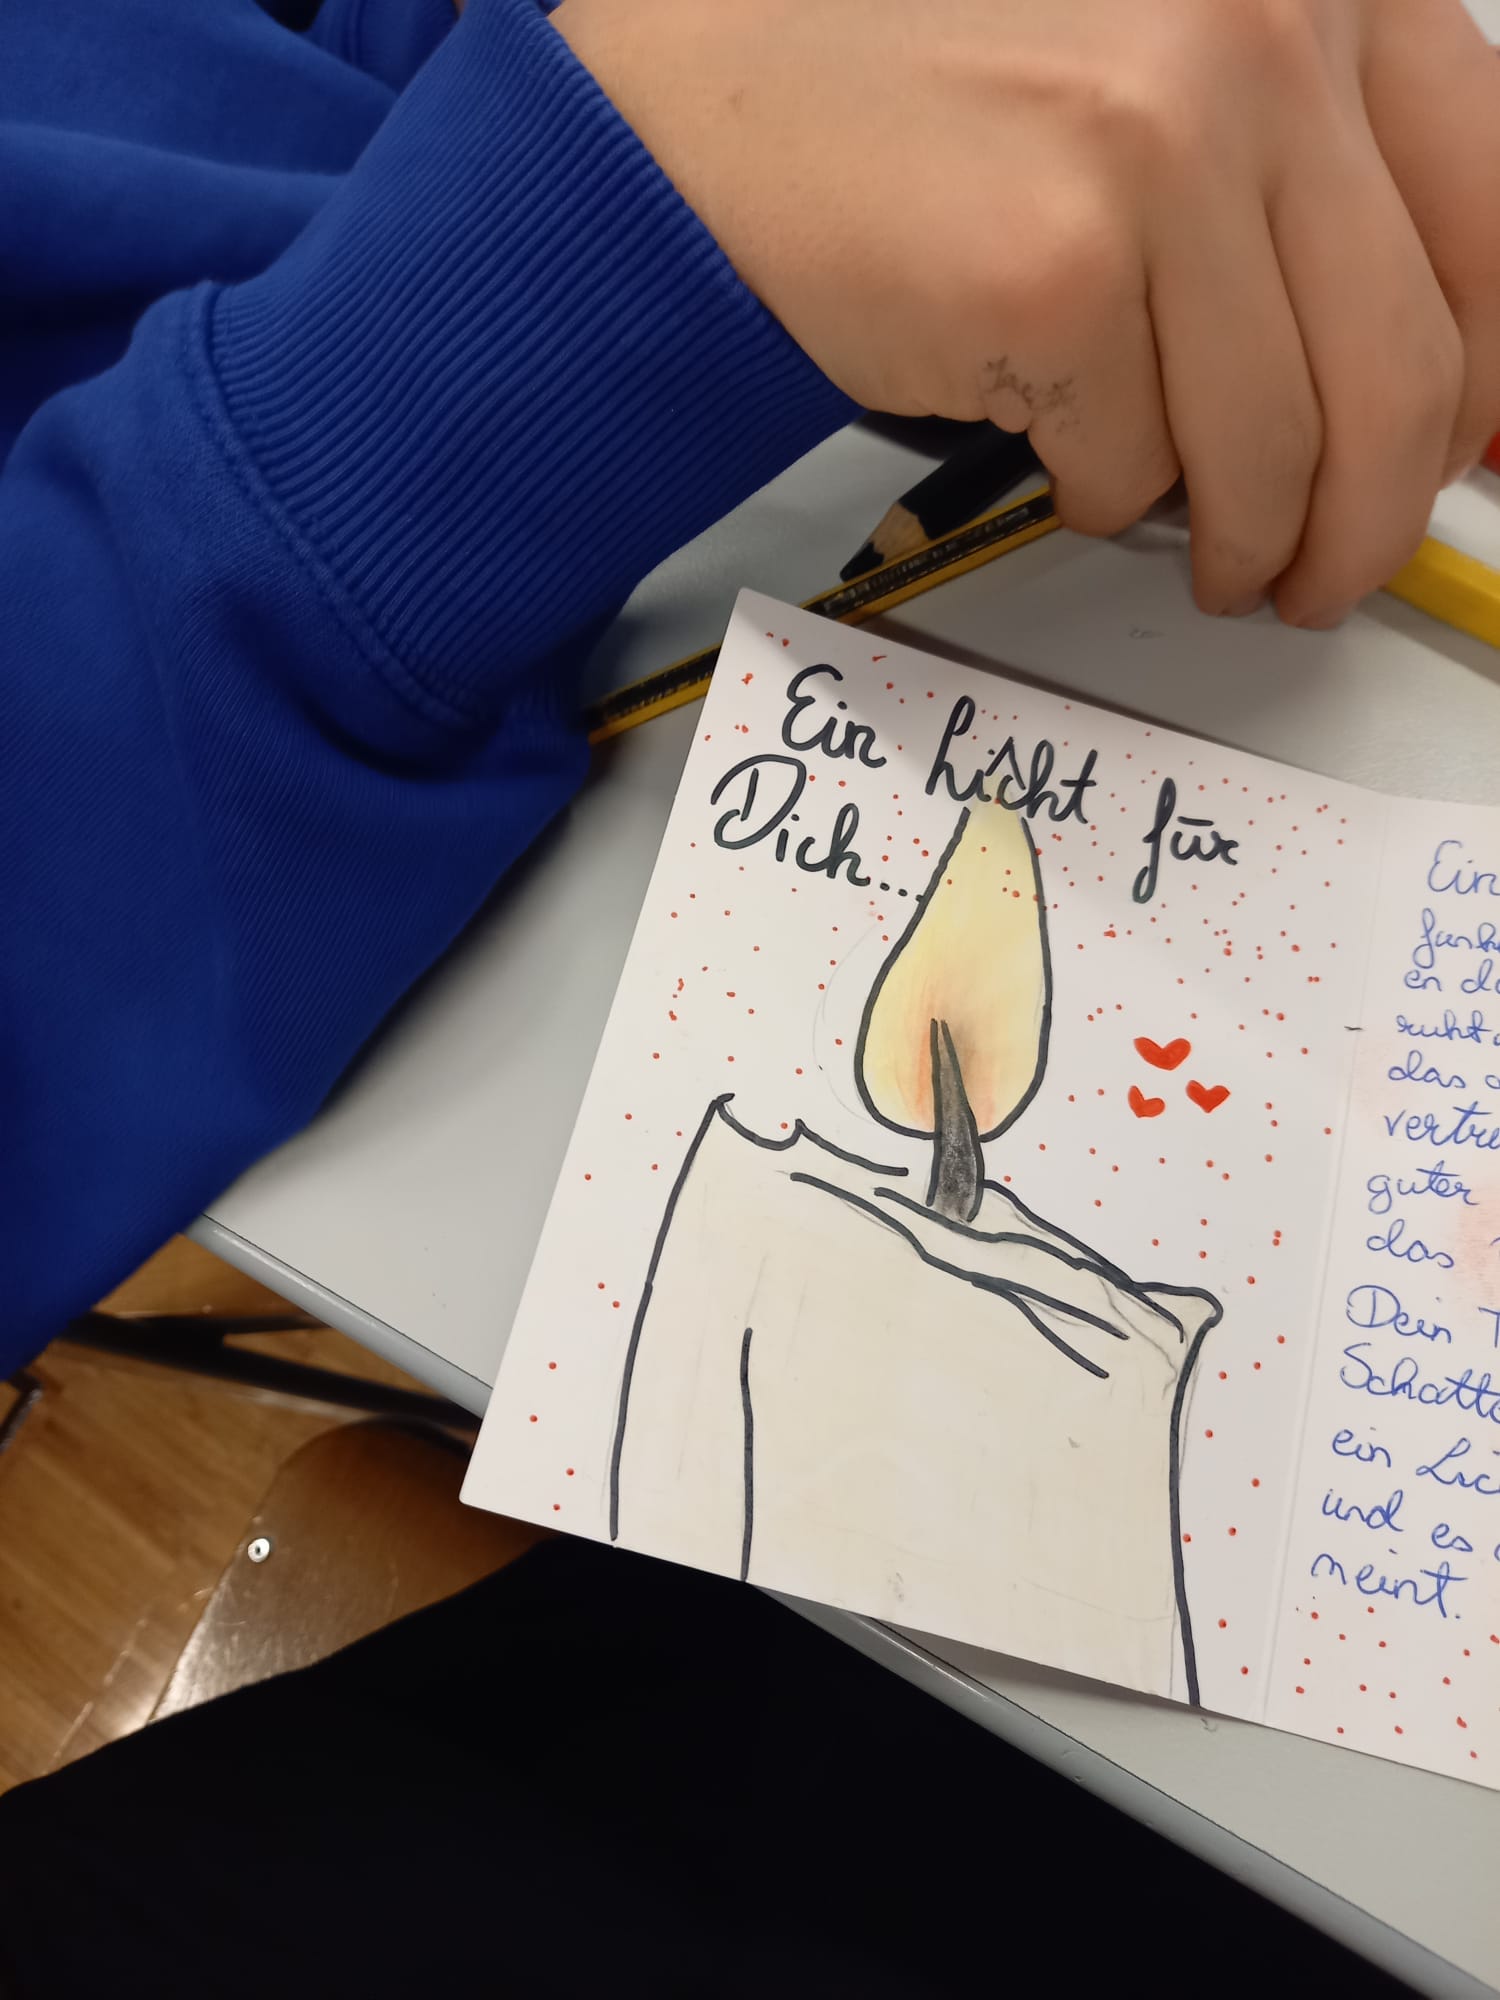 Ein Licht für
Dich...
Ein
en
ruht
das
vertre
guter
das
Dein T
Schatte
ein Lic
und es
meint.